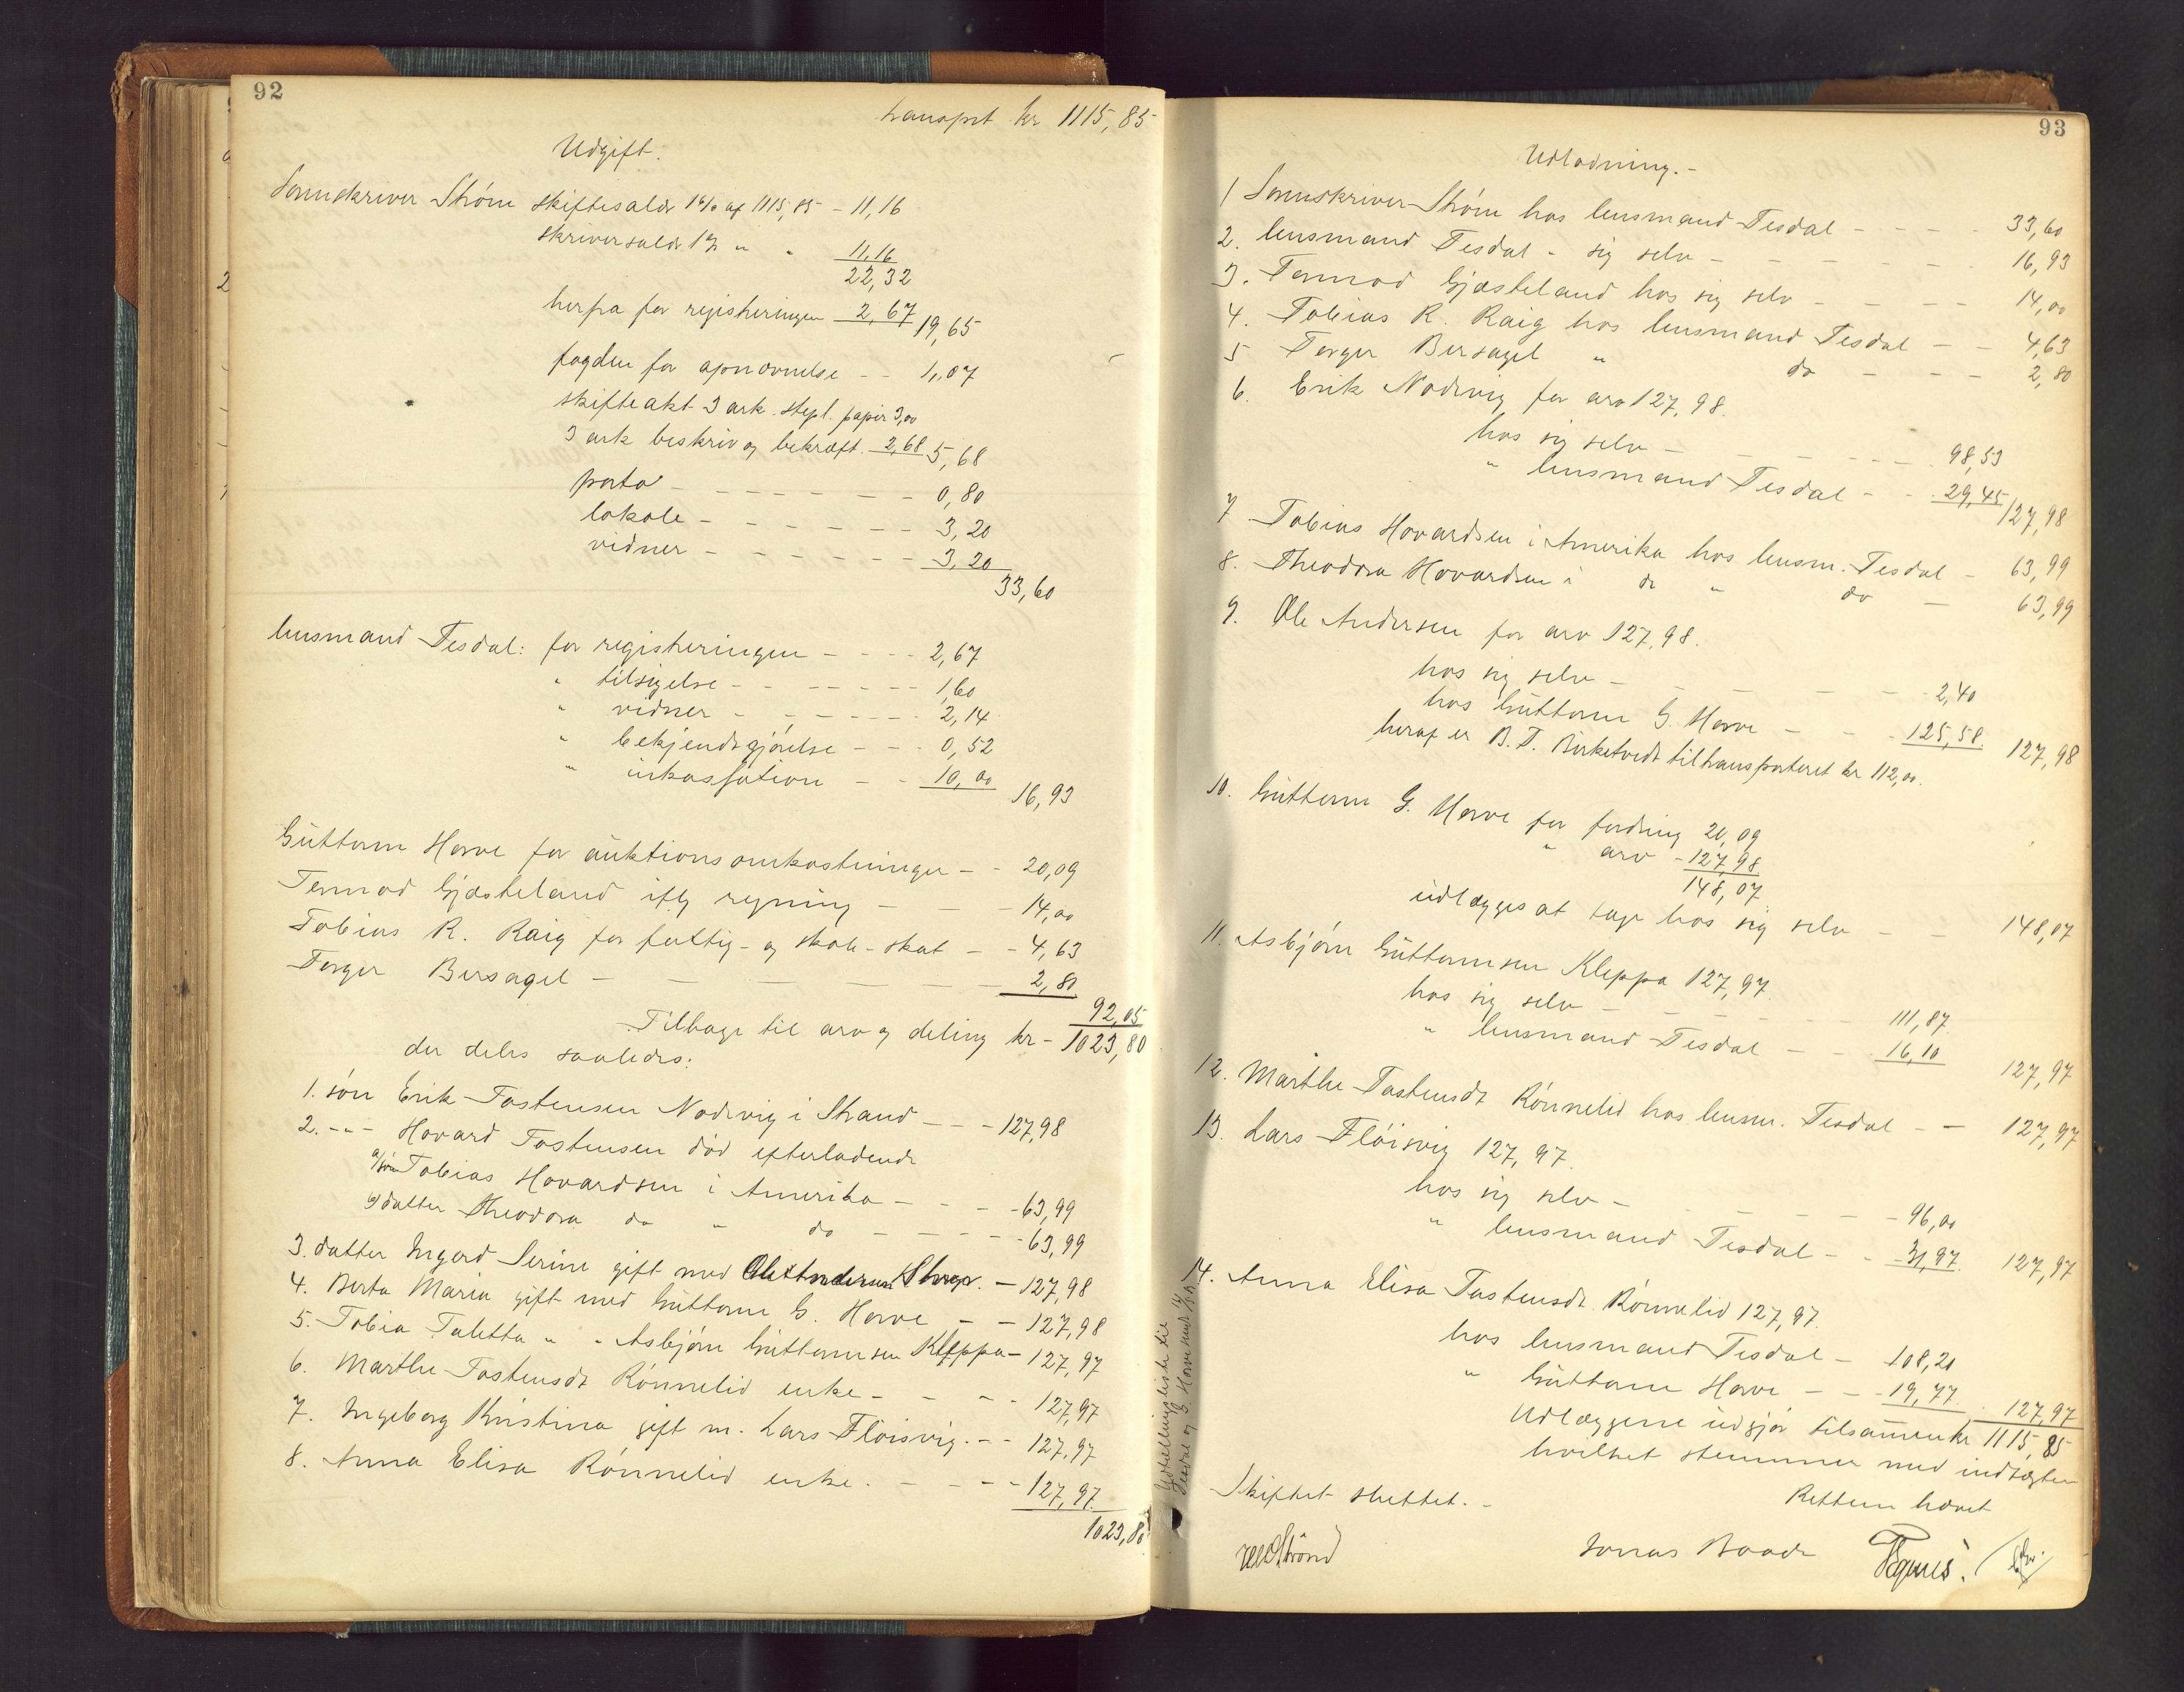 92
transprt kr 1115,85
Udgift.
Sornskriver Strøm skiftesalær 1% af 1115,85 - 11,16
skriversalær 1% " " 11,16
22,32
herfra for registreringen 2,67 19,65
fogden for opnævnelse - - 1,07
skifteakt 3 ark stepl. papir 3,00
3 ark beskriv og bekræft. 2,68 5,68
porto - - - - - - - 0,80
lokale - - - - - - 3,20
vidner - - - - - - 3,20
33,60
lensmand Tesdal: for registreringen - - - - 2,67
" tilsigelse - - - - - - - 1,60
" vidner - - - - - - - 2,14
" bekjendtgjørelse - - - 0,52
" inkassation - - 10,00 16,93
Guttorm Herve for auktionsomkostninger - - 20,09
Tormod Gjæsteland iflg regning - - - 14,00
Tobias R. Raig for fattig- og skole-skat - - 4,63
Torger Bersagel - - - - - - 2,80
92,05
Tilbage til arv og deling kr - 1023,80
der deles saaledes:
1. søn Erik Tostensen Nodvig i Strand - - - 127,98
2. - " - Hovard Tostensen død efterladende
a/ søn Tobias Hovardsen i Amerika - - - - 63,99
b/ datter Theodora do " do - - - - - 63,99
3. datter Ingerd Serine gift med Ole Andersen - 127,98
4. Berta Maria gift med Guttorm G. Herve - - 127,98
5. Tobia Taletta " " Asbjørn Guttormsen Kleppa - 127,97
6. Marthe Tostensdt Rønnelid enke - - - - 127,97
7. Ingeborg Kristina gift m. Lars Fløisvig. - - 127,97
8. Anna Elisa Rønnelid enke. - - - - 127,97
1023,80
93
Udlodning. -
1 Sornskriver Strøm hos lensmand Tesdal - - - - 33,60
2. lensmand Tesdal - sig selv - - - - - - - 16,93
3. Tormod Gjæsteland hos sig selv - - - - 14,00
4. Tobias R. Raig hos lensmand Tesdal - - 4,63
5 Torger Bersagel " do - - - 2,80
6. Erik Nodvig for arv 127,98.
hos sig selv - - - - - - - 98,53
" lensmand Tesdal - - 29,45 127,98
7 Tobias Hovardsen i Amerika hos lensm. Tesdal - 63,99
8. Theodora Hovardsen i do " do - 63,99
9. Ole Andersen for arv 127,98.
hos sig selv - - - - - - 2,40
hos Guttorm G. Herve - - - 125,58. 127,98
heraf er B. T. Birketvedt tiltransporteret kr 112,00.
10. Guttorm G. Herve for fordring 20,09
" arv - 127,98
148,07
udlægges at tage hos sig selv - - 148,07
11. Asbjørn Guttormsen Kleppa 127,97.
hos sig selv - - - - - 111,87
" lensmand Tesdal - - - 16,10 127,97
12. Marthe Tostensdt Rønnelid hos lensm. Tesdal - - 127,97
13. Lars Fløisvig 127,97.
hos sig selv - - - - - - 96,00
" lensmand Tesdal - - 31,97. 127,97
14. Anna Elisa Tostensdt Rønnelid 127,97.
hos lensmand Tesdal - 108,20
" Guttorm Herve - - - 19,77. 127,97
Udlæggene udgjør tilsammen kr 1115,85
hvilket stemmer med indtægten
Skiftet sluttet. -
Retten hævet
Jonas Baade
Udtællingsliste til
Tesdal og G. Herve